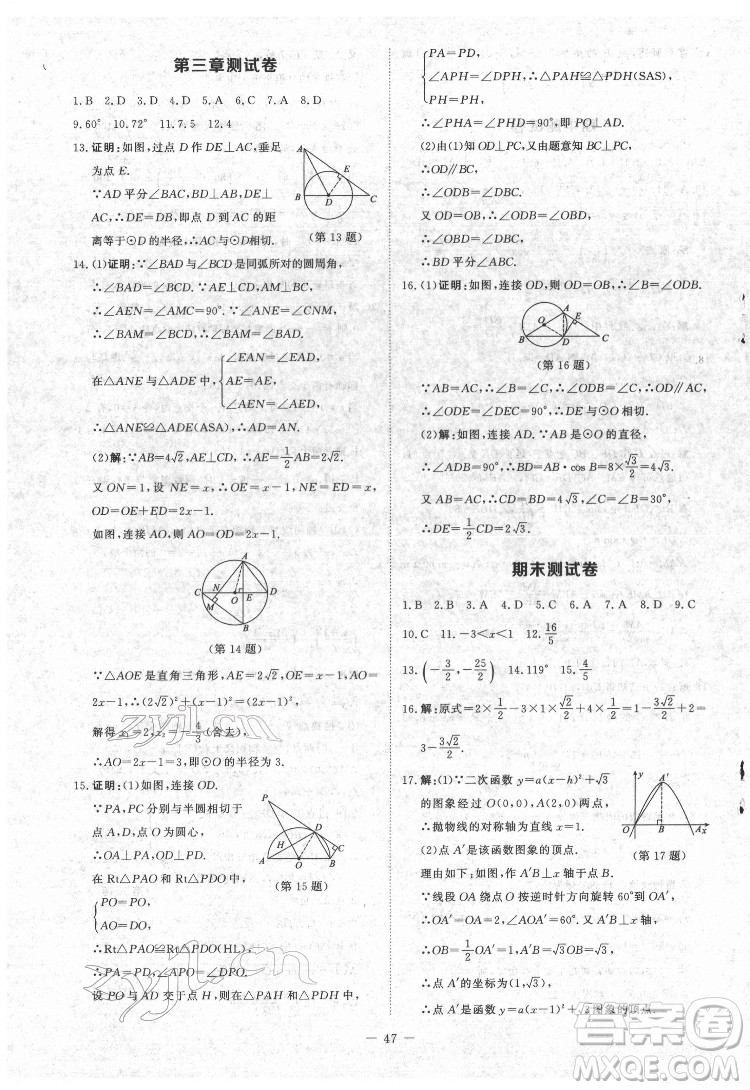 第三章测试卷
1.B 2.D 3.D 4.D 5.A 6.C 7.A 8.D
9.60° 10.72° 11.7.5 12.4
13.证明:如图,过点 D 作 DE⊥AC,垂足
为点 E.
∵AD 平分∠BAC,BD⊥AB,DE⊥
AC,∴DE=DB,即点 D 到 AC 的距
离等于⊙D 的半径,∴AC 与⊙D 相切.
A E B D C
(第 13 题)
14.(1)证明:∵∠BAD 与∠BCD 是同弧所对的圆周角,
∴∠BAD=∠BCD.∵AE⊥CD,AM⊥BC,
∴∠AEN=∠AMC=90°.∵∠ANE=∠CNM,
∴∠BAM=∠BCD.∴∠BAM=∠BAD.
在△ANE 与△ADE 中,{∠EAN=∠EAD,
AE=AE,
∠AEN=∠AED,
∴△ANE≌△ADE(ASA).
(2)解:∵AB=4√2,AE⊥CD,∴AE=1/2AB=2√2.
又∵ON=1,∴设 NE=x,则 OE=x-1,NE=ED=x,
OD=OE+ED=2x-1.
如图,连接 AO,则 AO=OD=2x-1.
A N C O E D M B
(第 14 题)
∵△AOE 是直角三角形,AE=2√2,OE=x-1,AO=
2x-1,∴(2√2)²+(x-1)²=(2x-1)².
解得 x₁=2,x₂=-4/3(舍去),
∴AO=2x-1=3,即⊙O 的半径为 3.
15.证明:(1)如图,连接 OD.
∵PA,PC 分别与半圆相切于
点 A,D,点 O 为圆心,
∴OA⊥PA,OD⊥PC.
在 Rt△PAO 和 Rt△PDO 中,
{PO=PO,
AO=DO,
P D C H A O B
(第 15 题)
∴Rt△PAO≌Rt△PDO(HL),
∴PA=PD,∠APO=∠DPO.
设 PO 与 AD 交于点 H,则在△PAH 和△PDH 中,
{PA=PD,
∠APH=∠DPH,∴△PAH≌△PDH(SAS),
PH=PH,
∴∠PHA=∠PHD=90°,即 PO⊥AD.
(2)由(1)知 OD⊥PC,又由题意知 BC⊥PC,
∴OD∥BC,
∴∠ODB=∠DBC.
又 OD=OB,∴∠ODB=∠OBD,
∴∠OBD=∠DBC,
∴BD 平分∠OBC.
16.(1)证明:如图,连接 OD,则 OD=OB,∴∠B=∠ODB.
A E O B D C
(第 16 题)
∵AB=AC,∴∠B=∠C,∴∠ODB=∠C,∴OD∥AC,
∴∠ODE=∠DEC=90°,∴DE 是⊙O 的切线.
(2)解:如图,连接 AD.∵AB 是⊙O 的直径,
∴∠ADB=90°,∴BD=AB·cos B=8×√3/2=4√3.
又∵AB=AC,∴CD=BD=4√3,∠C=∠B=30°,
∴DE=1/2CD=2√3.
期末测试卷
1.B 2.B 3.A 4.D 5.C 6.A 7.A 8.D 9.C
10.C 11.-3<x<1 12.16/5
13.(-3/2,-25/2) 14.119° 15.4/5
16.解:原式=2×1/2-3×1×√2/2+4×1/2=1-3√2/2+2=
3-3√2/2.
17.解:(1)∵二次函数 y=a(x-h)²+√3
的图象经过 O(0,0),A(2,0)两点,
∴抛物线的对称轴为直线 x=1.
(2)点 A′是该函数图象的顶点.
理由如下:如图,作 A′B⊥x 轴于点 B.
y A′ O B A x
(第 17 题)
∵线段 OA 绕点 O 按逆时针方向旋转 60°到 OA′,
∴OA′=OA=2,∠A′OA=60°.∵A′B⊥x 轴,
∴OB=1/2OA′=1,A′B=√3/2OA′=√3,
∴点 A′的坐标为(1,√3),
∴点 A′是函数 y=a(x-1)²+√3图象的顶点.
— 47 —
zyjl.cn
zyjl.cn
答案圈
MXQE.COM